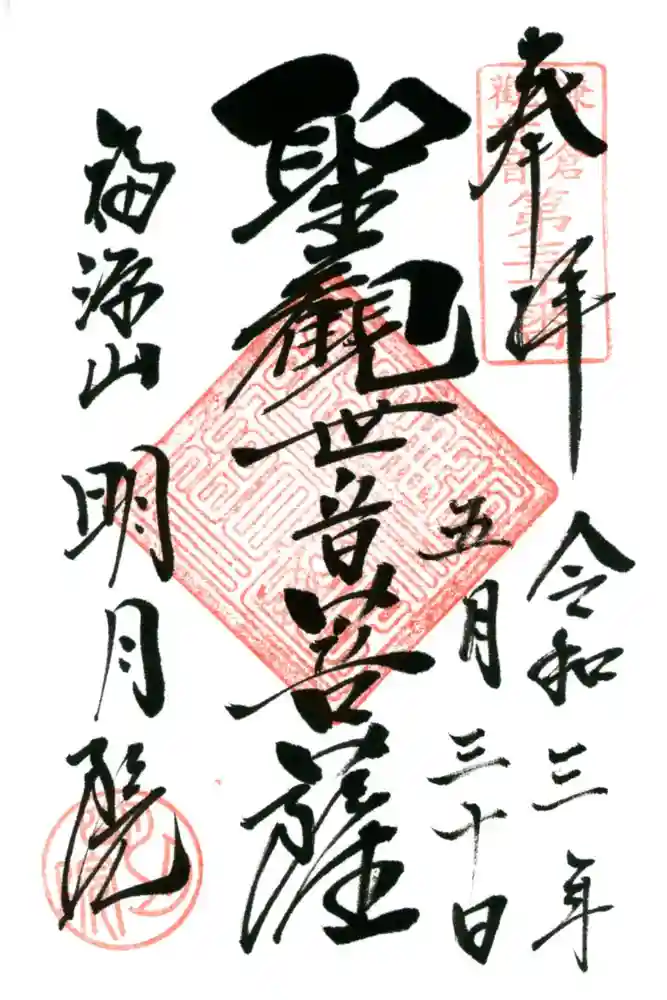 奉拝
鎌倉
観音
第三十番
令和三年
五月三十日
聖觀世音菩薩
福源山
明月院